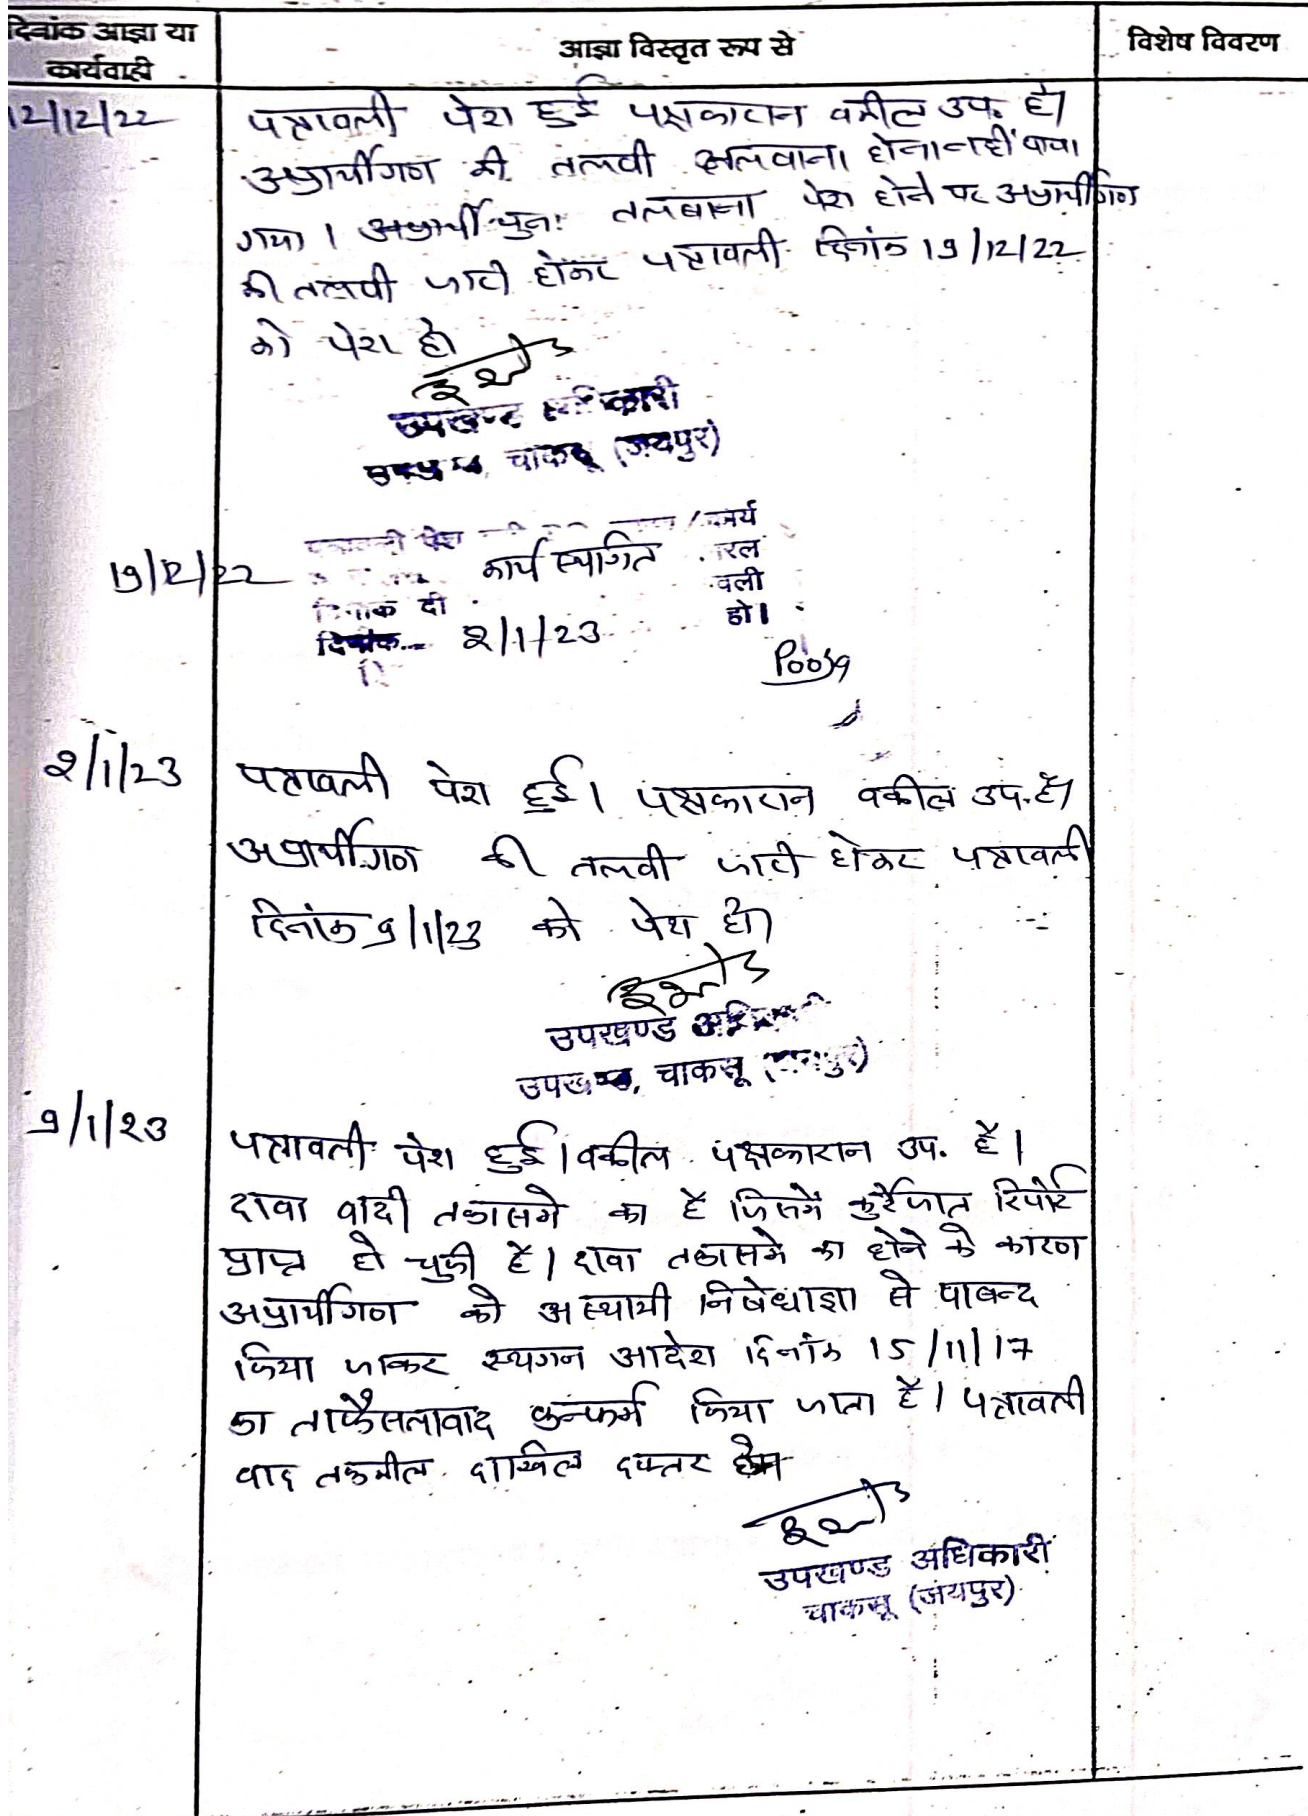 दिनांक आज्ञा या
कार्यवाही
आज्ञा विस्तृत रूप से
विशेष विवरण
12/12/22
पत्रावली पेश हुई पक्षकारान वकील उप. है।
अप्रार्थीगण की तलवी तलवाना होना नहीं पाया
गया। अप्रार्थी पुनः तलवाना पेश होने पर अप्रार्थीगण
की तलवी जारी होकर पत्रावली दिनांक 19/12/22
को पेश हो
उपखण्ड अधिकारी
चाकसू (जयपुर)
19/12/22
पत्रावली पेश
कार्य स्थगित
दिनांक 2/1/23
हो।
Pooja
2/1/23
पत्रावली पेश हुई। पक्षकारान वकील उप. है।
अप्रार्थीगण की तलवी जारी होकर पत्रावली
दिनांक 9/1/23 को पेश हो
उपखण्ड अधिकारी
उपखण्ड, चाकसू (जयपुर)
9/1/23
पत्रावली पेश हुई। वकील पक्षकारान उप. है।
दावा वादी तकासमे का है जिसमें कुर्रेजात रिपोर्ट
प्राप्त हो चुकी है। दावा तकासमे का होने के कारण
अप्रार्थीगण को अस्थायी निषेधाज्ञा से पाबन्द
किया जाकर स्थगन आदेश दिनांक 15/11/17
का ताफैसलावाद कन्फर्म किया जाता है। पत्रावली
वाद तकमील दाखिल दफ्तर हो
उपखण्ड अधिकारी
चाकसू (जयपुर)